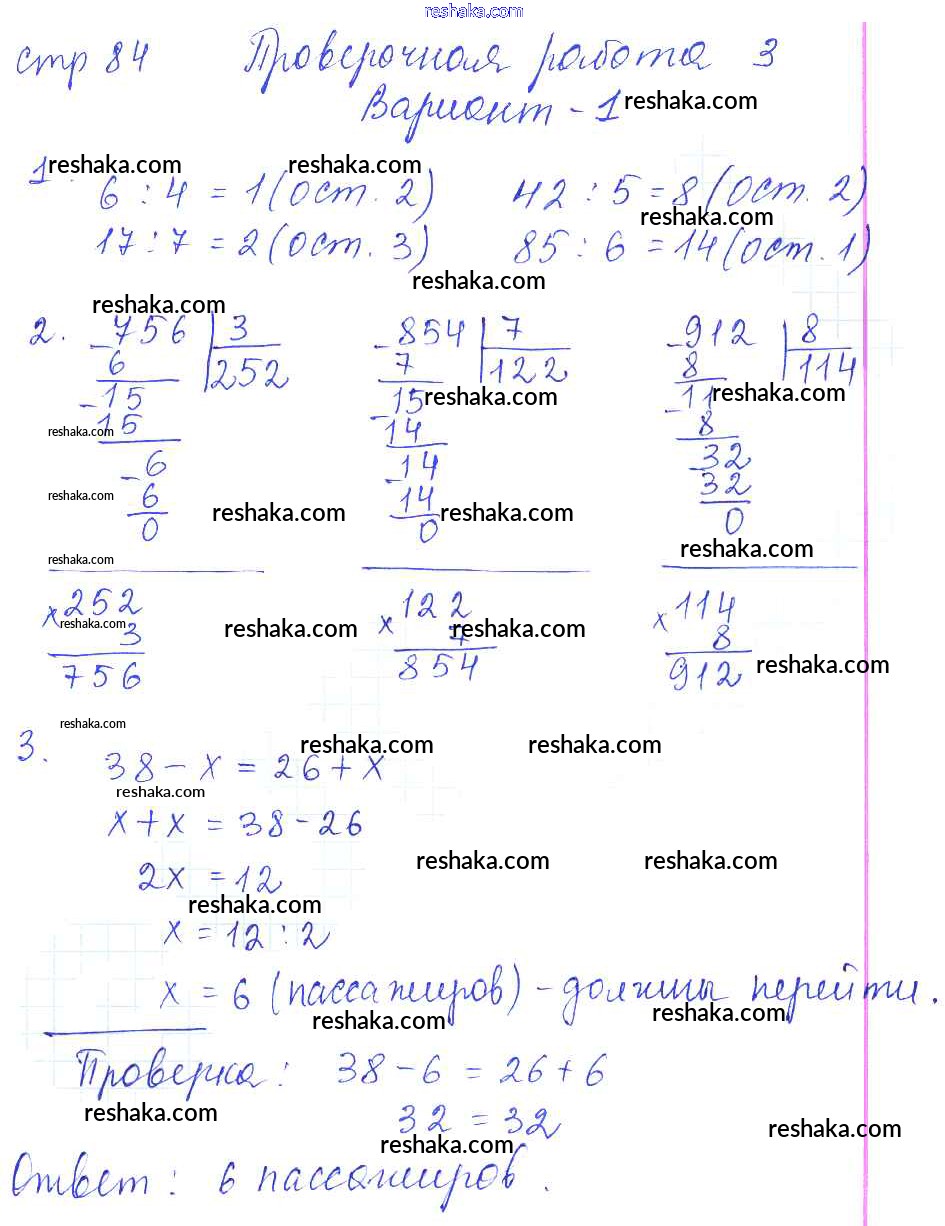 reshaka.com
стр 84 Проверочная работа 3
Вариант - 1 reshaka.com
reshaka.com reshaka.com
1. 6 : 4 = 1 (ост. 2) 42 : 5 = 8 (ост. 2)
reshaka.com
17 : 7 = 2 (ост. 3) 85 : 6 = 14 (ост. 1)
reshaka.com
reshaka.com
2. - 756 | 3 - 854 | 7 - 912 | 8
6 252 7 122 8 114
reshaka.com reshaka.com
- 15 - 15 - 11
15 14 8
reshaka.com
- 6 - 14 - 32
6 14 32
reshaka.com reshaka.com reshaka.com
0 0 0
reshaka.com
reshaka.com
× 252 × 122 × 114
reshaka.com reshaka.com reshaka.com
3 7 8
756 854 912
reshaka.com
reshaka.com
3. reshaka.com reshaka.com
38 - x = 26 + x
reshaka.com
x + x = 38 - 26
reshaka.com reshaka.com
2x = 12
reshaka.com
x = 12 : 2
x = 6 (пассажиров) - должны перейти.
reshaka.com reshaka.com
Проверка : 38 - 6 = 26 + 6
reshaka.com
32 = 32 reshaka.com
reshaka.com
Ответ : 6 пассажиров.